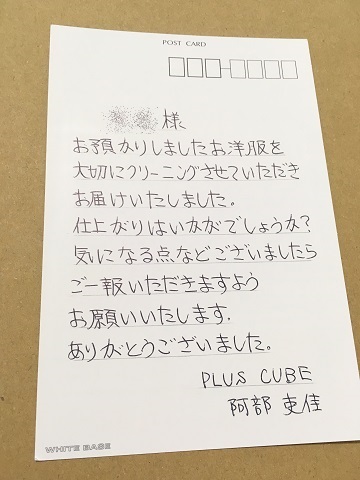 POST CARD
様
お預かりしましたお洋服を
大切にクリーニングさせていただき
お届けいたしました。
仕上がりはいかがでしょうか?
気になる点などございましたら
ご一報いただきますよう
お願いいたします.
ありがとうございました。
PLUS CUBE
阿部 吏佳
WHITE BASE